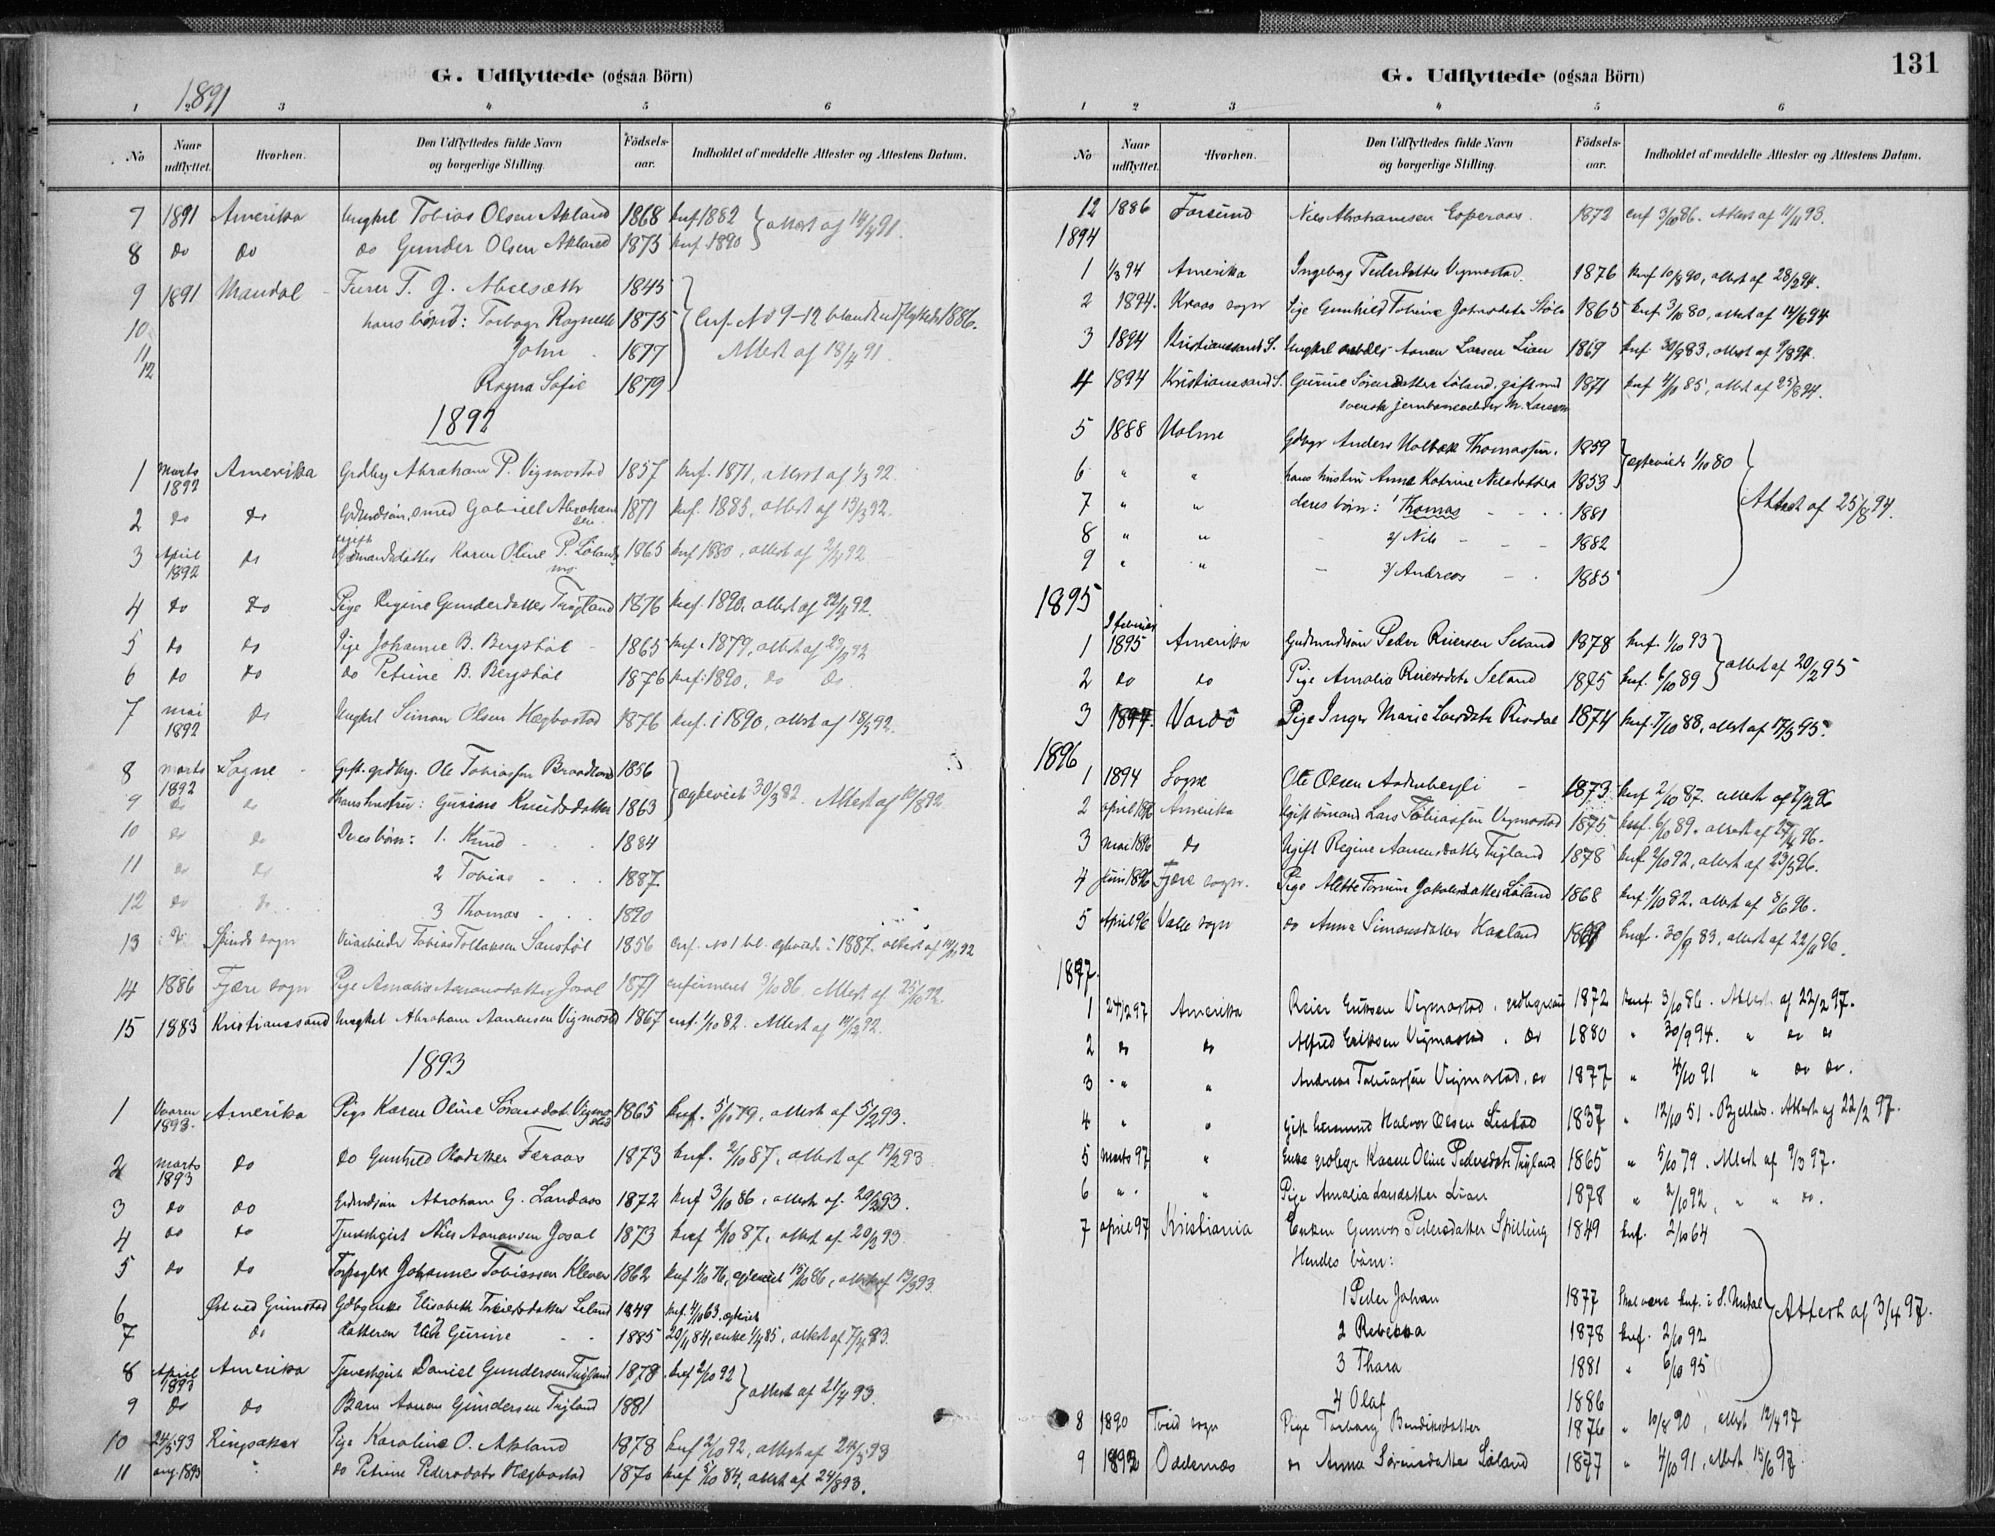 G. Udflyttede (ogsaa Börn)
1891
1 2 3 4 5 6
No
Naar udflyttet.
Hvorhen.
Den Udflyttedes fulde Navn og borgerlige Stilling.
Födsels-aar.
Indholdet af meddelte Attester og Attestens Datum.
7 1891 Amerika Ungkrl Tobias Olsen Akland 1868 knf 1882 } attest af 14/4 91.
8 do do do Gunder Olsen Akland 1873 knf. 1890
9 1891 Mandal Furer T. G. 1845
10 hans børn: Torborg 1875 Cnf. No 9-12 blandt udflyttede 1886.
11 John 1877 Attest af 18/4 91.
12 Ragna Sofie 1879
1892
1 Marts 1892 Amerika Grdbrg Abraham P. Vigmostad 1857 knf. 1871, attest af 1/3 92.
2 do do Grdmdsøn, smed Gabriel Abrahamsen 1871 knf. 1885, attest af 13/3 92.
3 April 1892 do ugift Karen Oline P. 1865 knf 1880, attest af 2/4 92
4 do do Pige Regine Gundersdatter Trygland 1876 knf. 1890. attest af 22/4 92.
5 do do Pige Johanne B. Bergstøl 1865 knf. 1879, attest af 23/4 92
6 do do do Petrine B. Bergstøl 1876 knf. 1890, do do.
7 mai 1892 do Ungkrl Simon Olsen Hægbostad 1876 knf. i 1890, attest af 18/5 92.
8 marts 1892 Søgne Gift. grdbrg. Ole Tobiassen 1856 } ægteviet 30/3 82. Attest af 19/8 92.
9 do do Hans hustru: Gurine Knudsdatter 1863
10 do do Deres børn: 1. Knud 1884
11 do do 2 Tobias 1887
12 do do 3 Thomas 1890
13 do Spinds sogn Tobias Tollaksen 1856 cnf. No 1 bl. ægteviede i 1887. attest af
14 1886 Fjære sogn Pige Amalia Aanonsdatter Josal 1871 confirmeret 3/10 86. Attest af 25/10 92
15 1883 Kristianssand Ungkrl Abraham Aanensen Vigmostad 1867 cnf. 1/10 82. Attest af 14/12 92.
1893
1 Vaaren 1893. Amerika Pige Karen Oline Sørensdat. Vigmostad 1865 knf. 5/10 79, attest af 5/2 93.
2 marts 1893 do do Gunhild Olsdatter Færaas 1873 knf. 2/10 87, attest af 19/2 93
3 do do Grdmdsøn Abraham G. Landaas 1872 knf 3/10 86, attest af 20/2 93.
4 do do Tjenestegut Nils Aanonsen Josal 1873 knf 2/10 87, attest af 20/2 93
5 do do Johannes Tobiassen Kleven 1862 knf 1/10 76, ægteviet 15/10 86, attest af 13/3 93
6 Øst ved Grimstad Elisabeth Leland 1849 knf. 4/10 63, ægteviet
7 do datteren Gurine 1885 20/1 84, enke 1/4 85, attest af 7/4 93.
8 April 1893 Amerika Tjenestegut Daniel Gundersen Trygland 1878 knf 2/10 92 } attest af 21/4 93.
9 do do Barn Aanon Gundersen Trygland 1881
10 24/5 93 Ringsaker Pige Karoline O. Akland 1878 knf 2/10 92, attest af 24/5 93
11 aug. 1893 " do Petrine Pedersdatr Hægbostad 1870 knf 5/10 84, attest af 24/8 93.
G. Udflyttede (ogsaa Börn)
131
1 2 3 4 5 6
No
Naar udflyttet.
Hvorhen.
Den Udflyttedes fulde Navn og borgerlige Stilling.
Födsels-aar.
Indholdet af meddelte Attester og Attestens Datum.
12 1886 Farsund Nils Abrahamsen Esperaas 1872 cnf 3/10 86. Attest af 11/11 93.
1894
1 1/3 94 Amerika Ingeborg Pedersdatter Vigmostad. 1876 knf 10/8 90, attest af 28/2 94.
2 1894. sogn Pige Gunhild Tobine 1865 knf. 3/10 80, attest af 14/6 94
3 1894 Kristianssand S. Ungkrl Aanen Larsen Lian 1869 knf. 30/9 83, attest af 9/8 94.
4 1894 Kristianssand S. Gurine Sørensdatter Løland, gift med 1871 knf 4/10 85, attest af 25/8 94.
svensk jernbanearbeider M. Larsson
5 1888 Holme Gdbgr Anders Holbæk Thomassen, 1859 } ægteviede 1/10 80
6 " " hans hustru Anna Katrine Nilsdatter 1853
7 " " deres børn: 1 Thomas 1881 Attest af 25/8 94.
8 " " 2/ Nils 1882
9 " " 3/ Andreas 1885
1895
1 1895 Amerika Grdmndsøn Peder Reiersen Seland 1878 knf. 1/10 93 } attest af 20/2 95
2 do do Pige Amalia Reiersdatr Seland 1875 knf. 6/10 89
3 1894. Vardö Pige Inger Marie Risdal 1874 knf. 7/10 88, attest af 17/3 95.
1896
1 1894 Søgne Ole Olsen 1873 knf 2/10 87. attest af 7/2 96
2 april 1896 Amerika Ugift Lars Tobiassen Vigmostad 1875 knf. 6/10 89. attest af 27/4 96.
3 mai 1896 do Ugift Regine Aanensdatter Trygland 1878 knf 2/10 92, attest af 23/5 96.
4 Juni 1896 Fjære sogn. Pige Alette Jakobsdatter Løland 1868 knf. 1/10 82. attest af 8/6 96.
5 April 96 Valle sogn do Anna Simonsdatter Haaland 1869 knf. 30/9 83, attest af 22/11 96.
1897.
1 24/2 97 Amerika Reier Eriksen Vigmostad, 1872 knf. 3/10 86. Attest af 22/2 97.
2 do do Alfred Eriksen Vigmostad. do 1880 " 30/9 94. " do do
3 " " Andreas Tobiassen Vigmostad. do 1877 " 4/10 91 " do do.
4 " " Gift Halvor Olsen 1837 " 12/10 51. Bjelland. Attest af 22/2 97.
5 Marts 97 " Enke grdbgr Karen Oline Pedersdatr Trygland 1865 " 5/10 79. Attest af 9/3 97.
6 " " Pige Amalia Larsdatter Lian 1878 " 2/10 92, " " do.
7 april 97 Kristiania Enken Gunvor Pedersdatter Spilling 1849 knf. 2/10 64
Hendes børn:
1 Peder Johan 1877 Skal være knf. i S. Undal } Attest af 3/4 97.
2 Rebekka 1878 knf. 2/10 92
3 Thara 1881 " 6/10 95
4 Olaf 1886
8 1890 Tveid sogn Pige Torborg Bendiksdatter 1876 " 10/8 90, attest 12/4 97
9 1892 Oddernæs do Anna Sørensdatter Løland 1877 " 4/10 91, attest 15/6 97